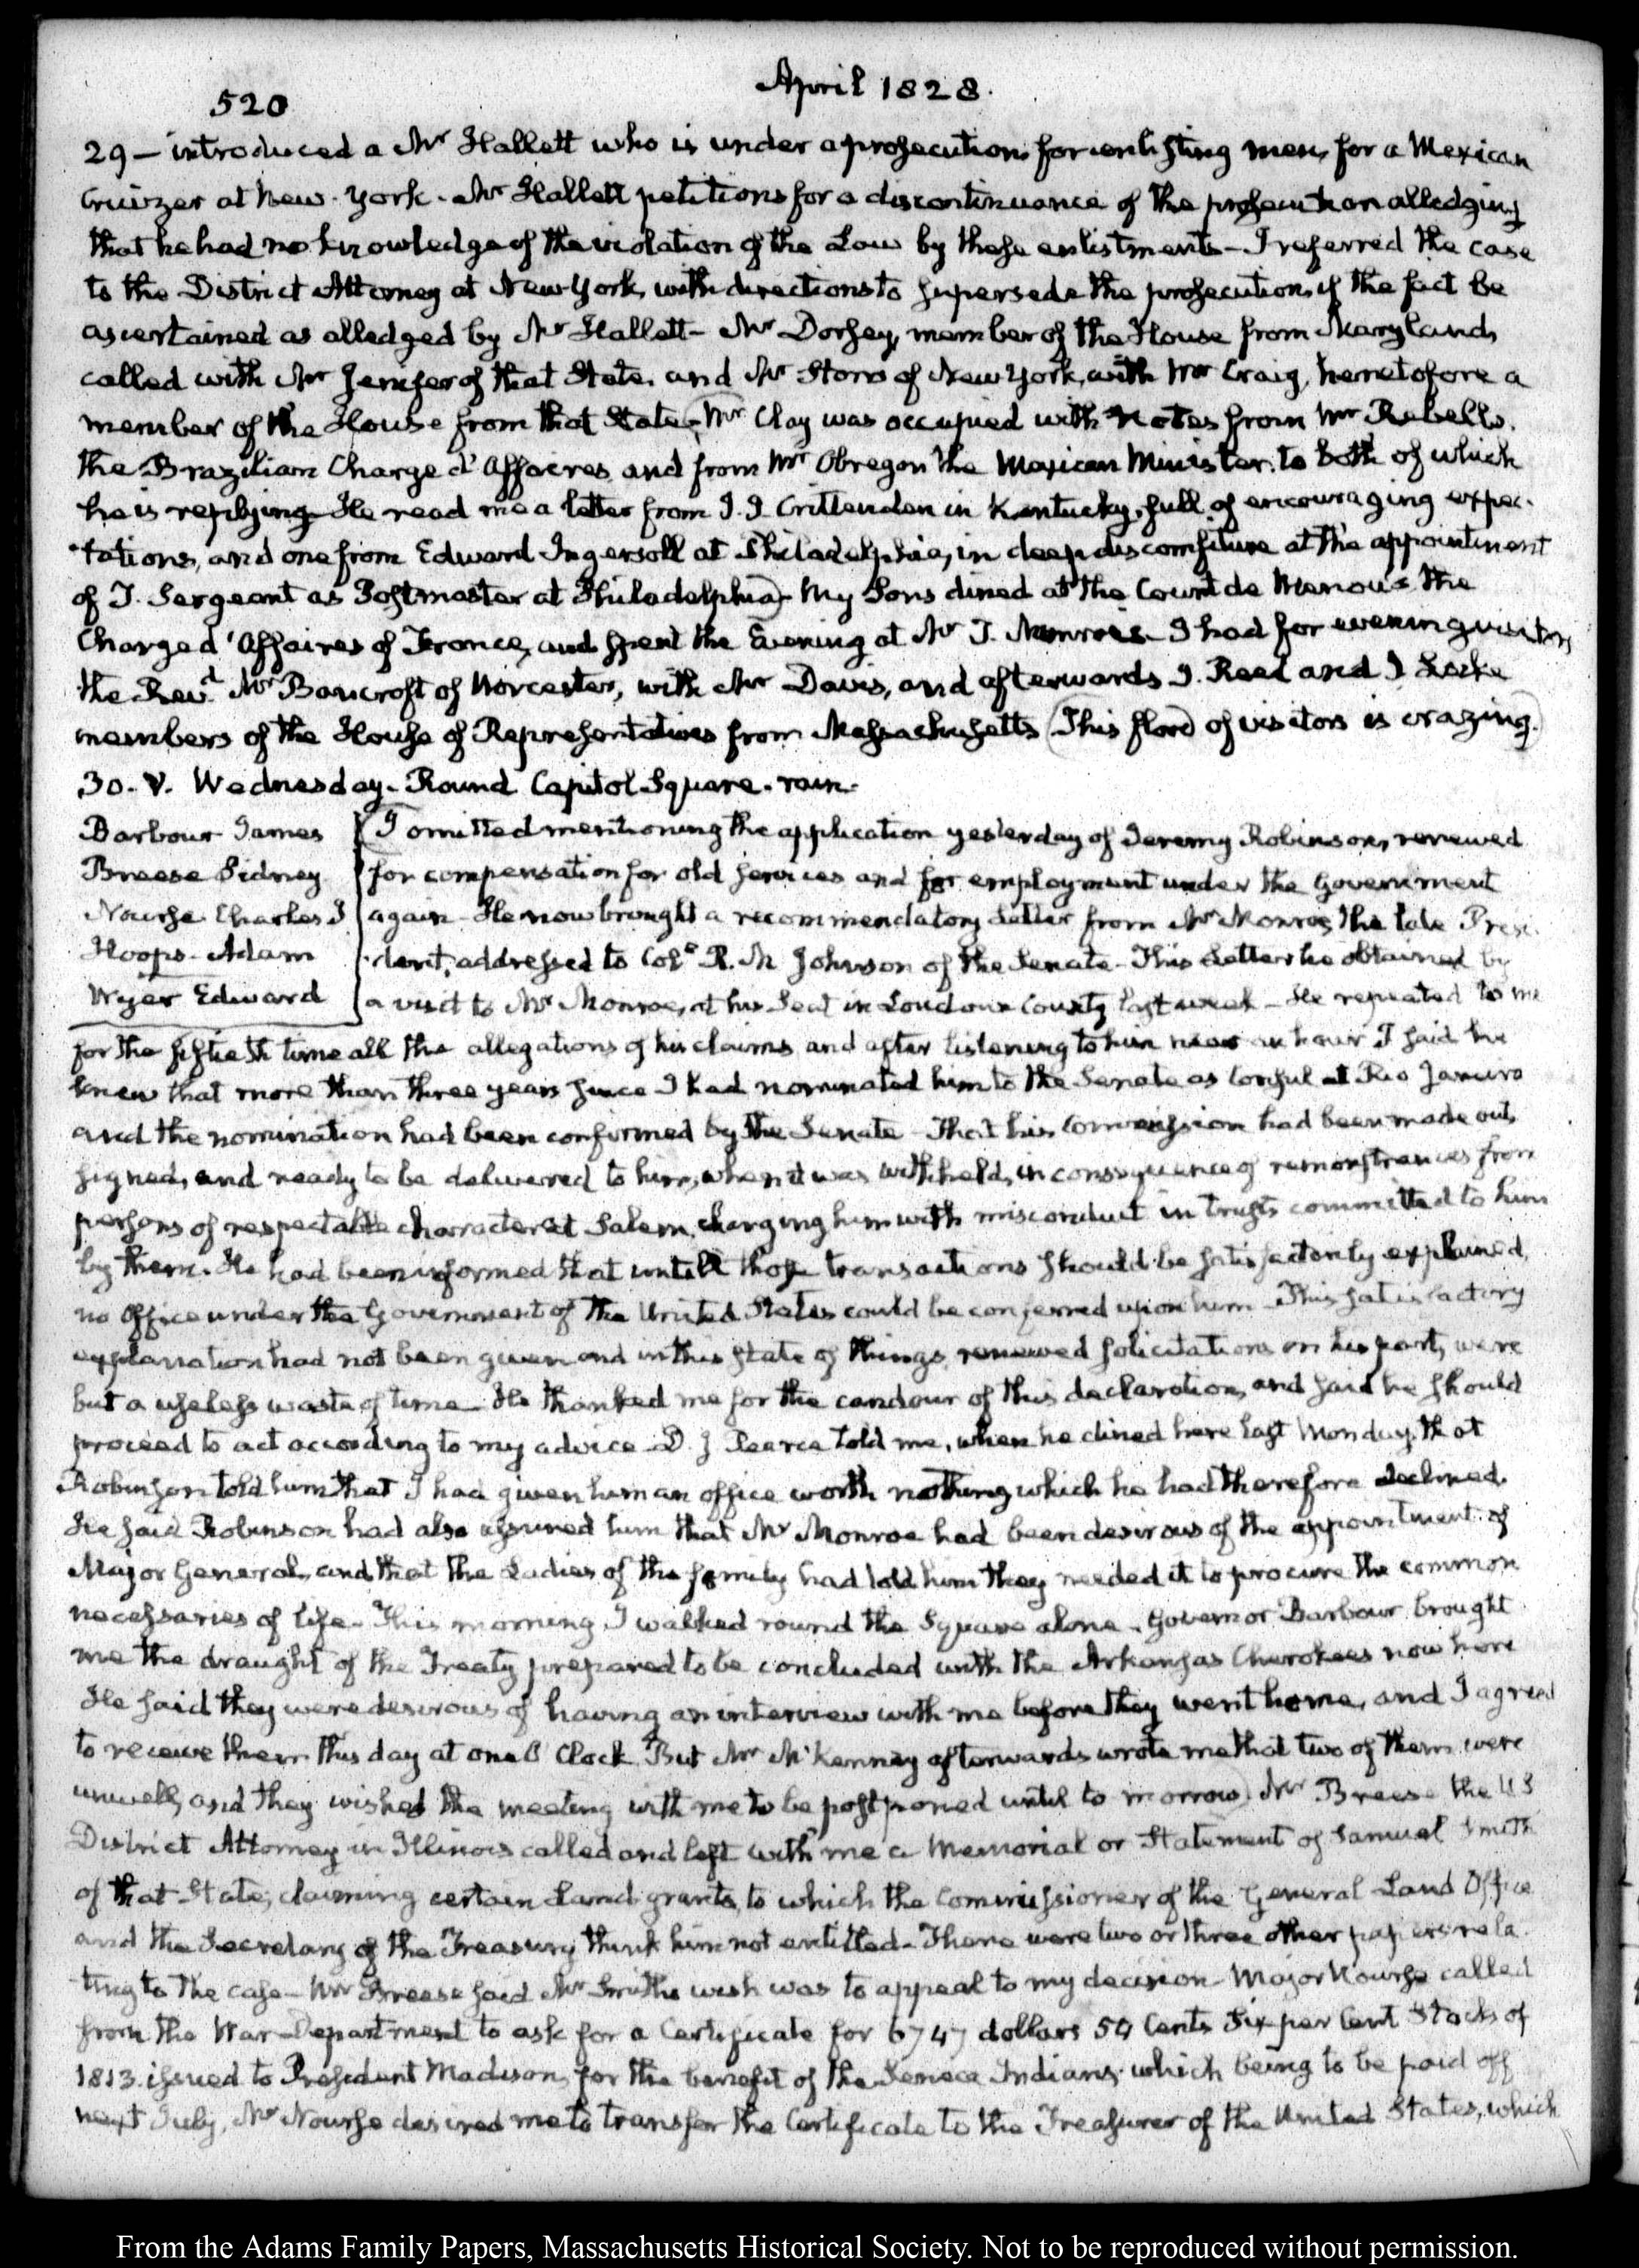 520
April 1828.
29 — introduced a Mr Hallett who is under a prosecution for enlisting men, for a Mexican
Cruizer at New-York. Mr Hallett petitions for a discontinuance of the prosecution alledging
that he had no knowledge of the violation of the Law by these enlistments — I referred the case
to the District Attorney at New York, with directions to supersede the prosecution, if the fact be
ascertained as alledged by Mr Hallett — Mr Dorsey, member of the House from Maryland,
called with Mr Jenifer of that State, and Mr Storrs of New York, with Mr Craig, heretofore a
member of the House from that State — Mr Clay was occupied with Notes from Mr Rebello,
the Brazilian Charge d'Affaires, and from Mr Obregon the Mexican Minister, to both of which
he is replying — He read me a letter from J. J. Crittenden in Kentucky, full of encouraging expec-
tations, and one from Edward Ingersoll at Philadelphia, in deep discomfiture at the appointment
of T. Sergeant as Postmaster at Philadelphia — My Sons dined at the Count de Menou's the
Charge d'Affaires of France, and spent the Evening at Mr T. Munroe's — I had for evening visitors
the Revd. Mr Bancroft of Worcester, with Mr Davis, and afterwards J. Reed and J Locke
members of the House of Representatives from Massachusetts (This flood of visitors is crazing.)
30. V. Wednesday. Round Capitol Square. rain.
Barbour James
Breese Sidney
Nourse Charles J
Hoops Adam
Wyer Edward
I omitted mentioning the application yesterday of Jeremy Robinson, renewed
for compensation for old services and for employment under the Government
again — He now brought a recommendatory Letter from Mr Monroe, the late Presi-
dent, addressed to Col. R. M Johnson of the Senate — This Letter he obtained by
a visit to Mr Monroe, at his Seat in Loudoun County last week — He repeated to me
for the fiftieth time all the allegations of his claims and after listening to him near an hour I said he
knew that more than three years since I had nominated him to the Senate as Consul at Rio Janeiro
and the nomination had been confirmed by the Senate — That his Commission had been made out,
signed, and ready to be delivered to him, when it was withheld, in consequence of remonstrances from
persons of respectable character at Salem, charging him with misconduct in trusts committed to him
by them. He had been informed that untill those transactions should be satisfactorily explained,
no Office under the Government of the United States could be conferred upon him — This satisfactory
explanation had not been given and in this state of things, renewed solicitations on his part, were
but a useless waste of time — He thanked me for the candour of this declaration, and said he should
proceed to act according to my advice — D. J Pearce told me, when he dined here last Monday, that
Robinson told him that I had given him an office worth nothing which he had therefore declined.
He said Robinson had also assured him that Mr Monroe had been desirous of the appointment of
Major General, and that the Ladies of the family had told him they needed it to procure the common
necessaries of life — This morning I walked round the Square alone. Governor Barbour brought
me the draught of the Treaty prepared to be concluded with the Arkansas Cherokees now here
He said they were desirous of having an interview with me before they went home, and I agreed
to receive them this day at one O'Clock. But Mr McKenney afterwards wrote me that two of them were
unwell, and they wished the meeting with me to be postponed until to morrow) Mr Breese the US
District Attorney in Illinois called and left with me a Memorial or Statement of Samuel Smith
of that State, claiming certain Land grants, to which the Commissioner of the General Land Office
and the Secretary of the Treasury think him not entitled — There were two or three other papers rela-
ting to the case — Mr Breese said Mr Smith's wish was to appeal to my decision — Major Nourse called
from the War Department to ask for a Certificate for 6747 dollars 54 Cents Six per Cent Stocks of
1813 issued to President Madison, for the benefit of the Seneca Indians, which being to be paid off
next July, Mr Nourse desired me to transfer the Certificate to the Treasurer of the United States, which
From the Adams Family Papers, Massachusetts Historical Society. Not to be reproduced without permission.